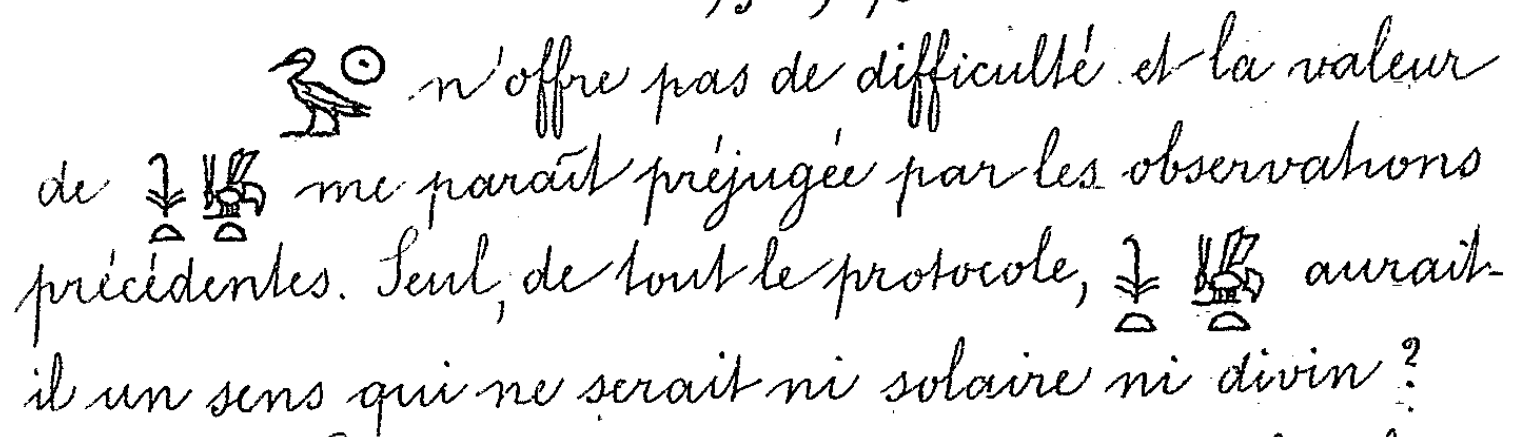 𓅭𓇳 n'offre pas de difficulté et la valeur
de 𓇓𓏏𓆤𓏏 me paraît préjugée par les observations
précédentes. Seul, de tout le protocole, 𓇓𓏏𓆤𓏏 aurait-
il un sens qui ne serait ni solaire ni divin ?